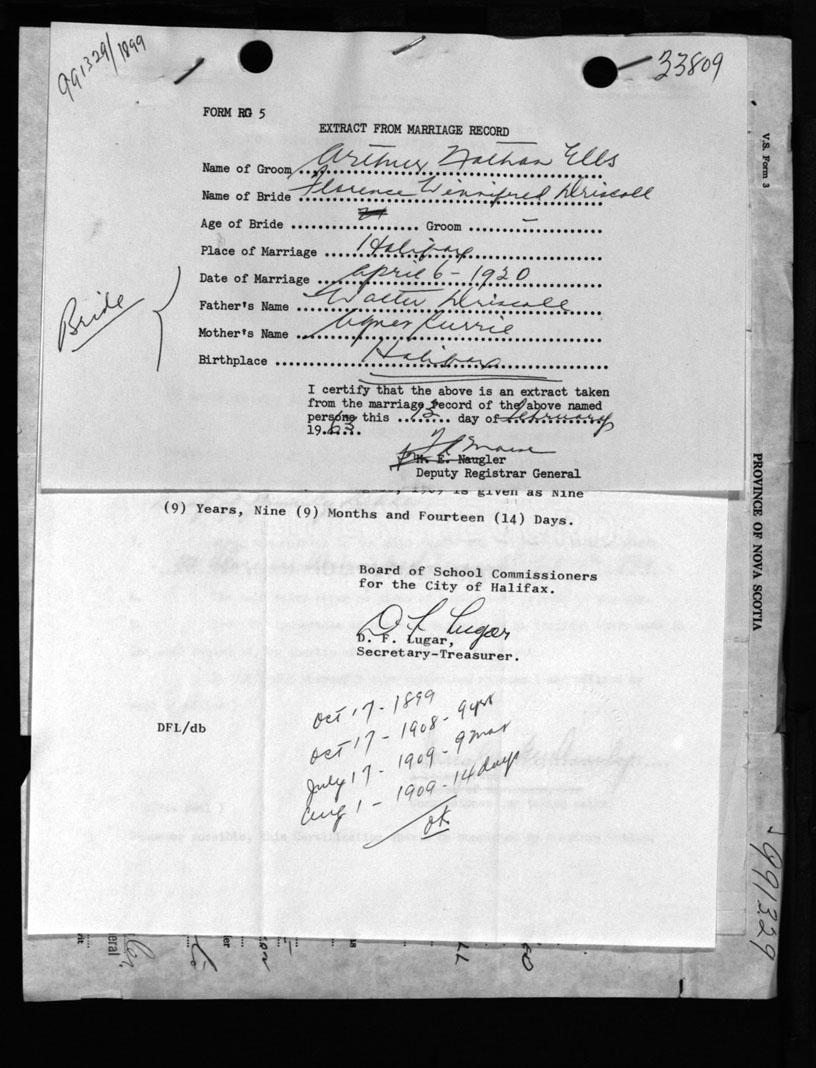 991329/1899
33809
FORM RG 5
EXTRACT FROM MARRIAGE RECORD
Name of Groom Arthur Nathan Ells
Name of Bride Florence Winnifred Driscoll
Age of Bride Groom –
Place of Marriage Halifax
Date of Marriage April 6 - 1920
Father's Name Walter Driscoll
Mother's Name Agnes Currie
Birthplace Halifax
Bride
I certify that the above is an extract taken
from the marriage record of the above named
persons this 13 day of February
1963.
M. E. Naugler
Deputy Registrar General
is given as Nine
(9) Years, Nine (9) Months and Fourteen (14) Days.
Board of School Commissioners
for the City of Halifax.
D F Lugar
D. F. Lugar,
Secretary-Treasurer.
DFL/db
Oct 17 - 1899
Oct 17 - 1908 - 9 yrs
July 17 - 1909 - 9 mos
Aug 1 - 1909 - 14 days
OK
V.S. Form 3
PROVINCE OF NOVA SCOTIA
991329